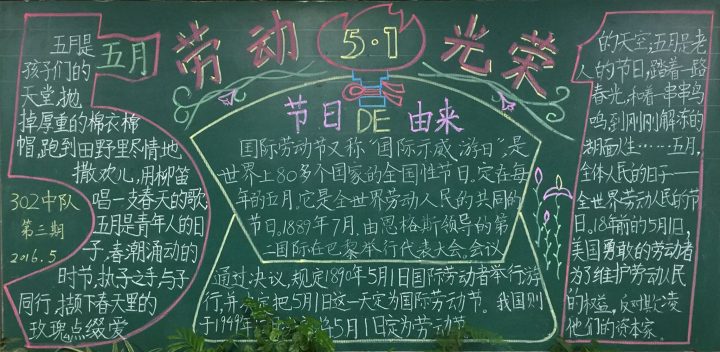 劳动 5·1 光荣
五月
五月是
孩子们的
天堂,抛
掉厚重的棉衣棉
帽,跑到田野里尽情地
撒欢儿,用柳笛
唱一支春天的歌
五月是青年人的日
子,春潮涌动的
时节,执子之手,与子
同行,撷下春天里的
玫瑰点缀爱
302中队
第三期
2016.5
节日DE由来
国际劳动节又称"国际示威游日",是
世界上80多个国家的全国性节日。定在每
年的五月。它是全世界劳动人民的共同的
节日。1889年7月,由恩格斯领导的第
二国际在巴黎举行代表大会。会议
通过决议,规定1890年5月1日国际劳动者举行游
行,并决定把5月1日这一天定为国际劳动节。我国则
于1949年 5月1日定为劳动节
的天空;五月是老
人的节日,踏着一路
春光,和着一串串鸟
鸣,到刚刚解冻的
湖畔人生……五月,
全体人民的日子——
全世界劳动人民的节
日。18年前的5月1日,
美国勇敢的劳动者
为了维护劳动人民
的权益,反对
他们的资本家。